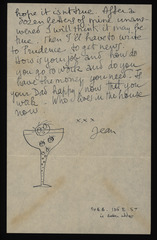 hope it isn't true. After a
dozen letters of mine unans-
wered I will think it may be
true. Then I'll have to write
to Prudence to get news.
How is your job and how do
you go to work and do you
have the money you need? Is
your Dad happy now that you
work – Who lives in the house
now
x x x
Jean